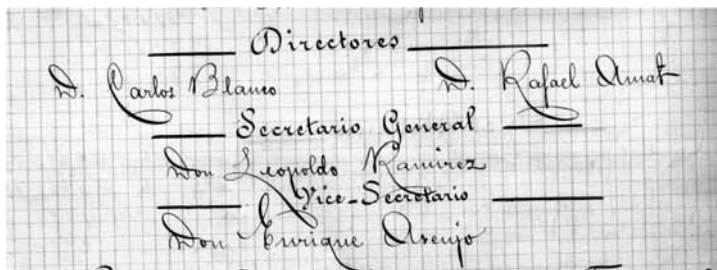 Directores
D. Carlos Blanco D. Rafael Amat
Secretario General
Don Leopoldo Ramirez
Vice-Secretario
Don Enrique Asenjo